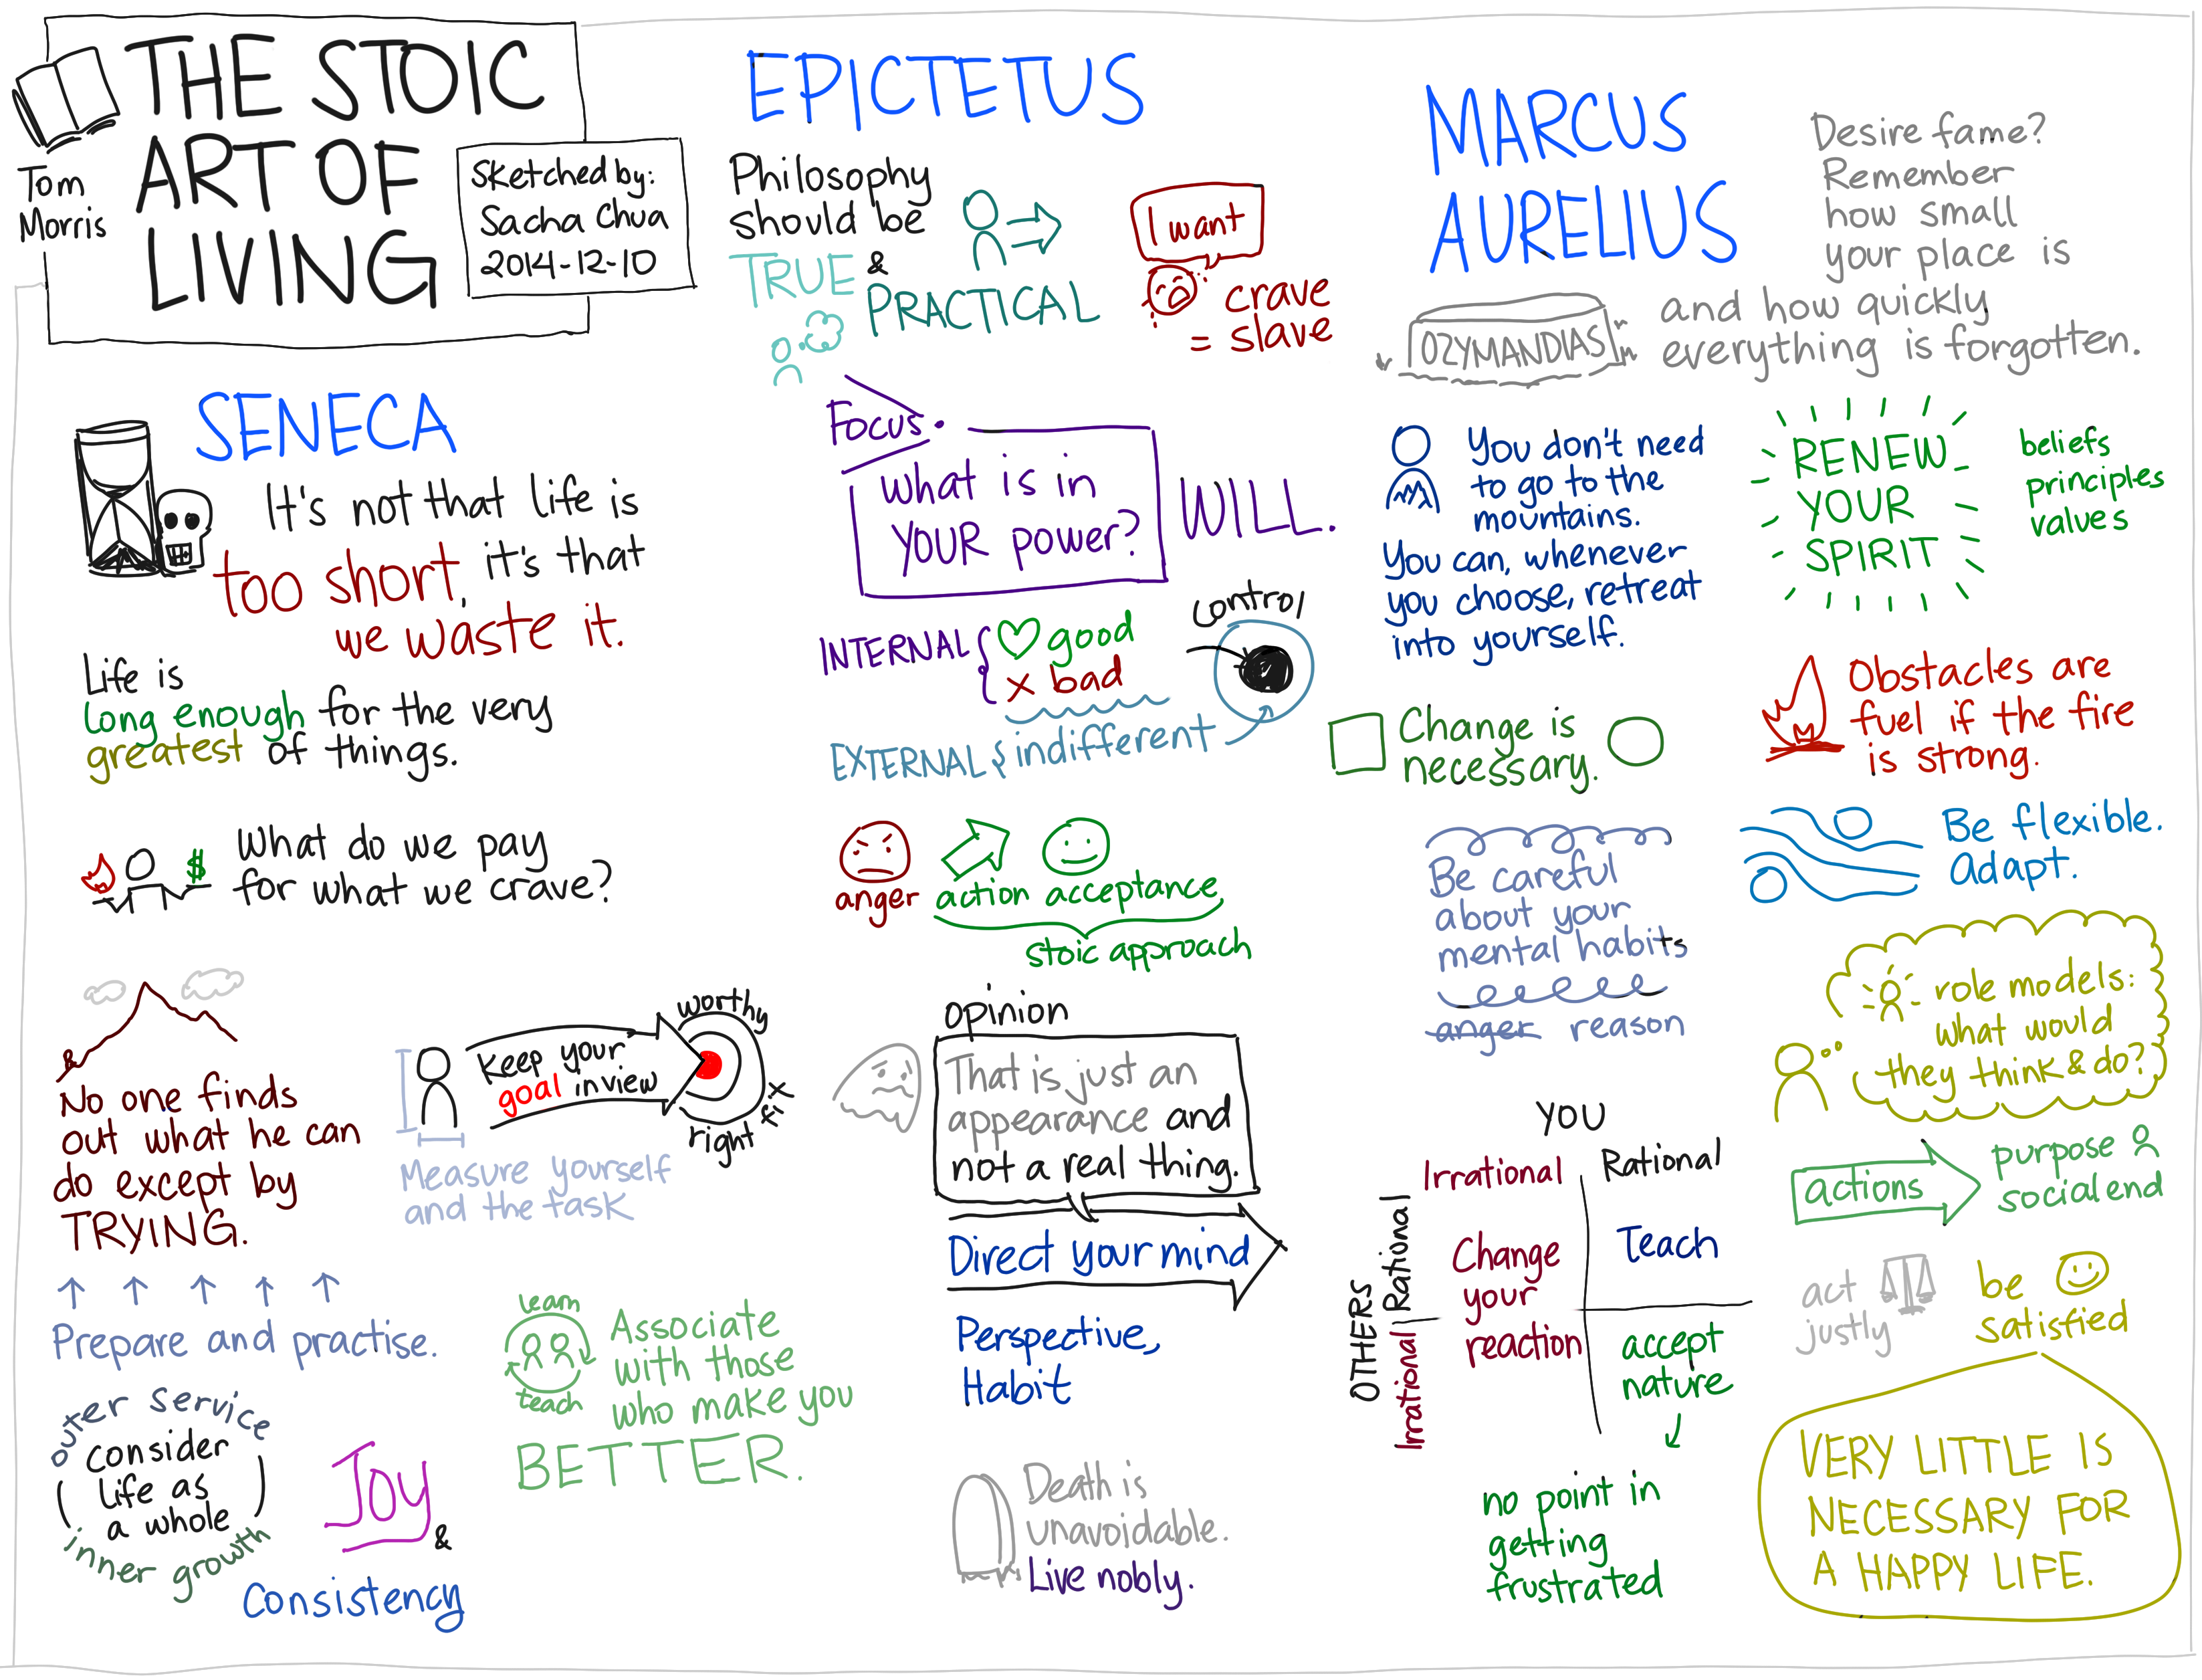 THE STOIC
ART OF
LIVING
Tom
Morris
Sketched by:
Sacha Chua
2014-12-10
SENECA
It's not that life is
too short, it's that
we waste it.
Life is
long enough for the very
greatest of things.
$
What do we pay
for what we crave?
No one finds
out what he can
do except by
TRYING.
Keep your
goal in view
worthy
right fit
Measure yourself
and the task
Prepare and practise.
outer service
consider
life as
a whole
inner growth
Joy
&
Consistency
learn
teach
Associate
with those
who make you
BETTER.
EPICTETUS
Philosophy
should be
TRUE &
PRACTICAL
I want
crave
= slave
Focus.
What is in
YOUR power?
WILL.
INTERNAL
good
x bad
EXTERNAL
indifferent
control
anger
action acceptance
stoic approach
opinion
That is just an
appearance and
not a real thing.
Direct your mind
Perspective,
Habit
Death is
unavoidable.
Live nobly.
MARCUS
AURELIUS
Desire fame?
Remember
how small
your place is
and how quickly
everything is forgotten.
OZYMANDIAS
You don't need
to go to the
mountains.
You can, whenever
you choose, retreat
into yourself.
RENEW
YOUR
SPIRIT
beliefs
principles
values
Change is
necessary.
Obstacles are
fuel if the fire
is strong.
Be flexible.
Adapt.
Be careful
about your
mental habits
anger reason
role models:
what would
they think & do?
YOU
Irrational
Rational
OTHERS
Rational
Irrational
Change
your
reaction
Teach
accept
nature
no point in
getting
frustrated
actions
purpose
social end
act
justly
be
satisfied
VERY LITTLE IS
NECESSARY FOR
A HAPPY LIFE.